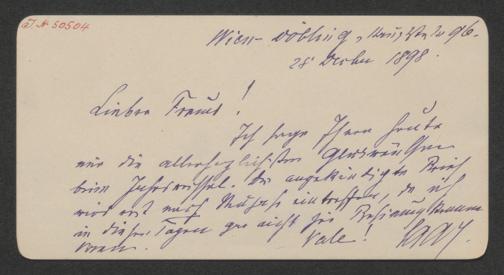 A 50504
Wien - Döbling,
28 Decbr 1898.
Lieber Freund!
Ich sage Ihnen heute
nur die allerherzlichsten Glückwünsche
beim Jahreswechsel. Der angekündigte Brief
wird erst nach eintreffen, da ich
in diesen Tagen gar nicht zur
Vale!